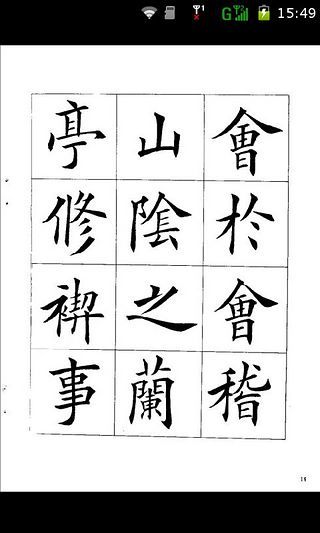 15:49
會於會稽
山陰之蘭
亭修禊事
18